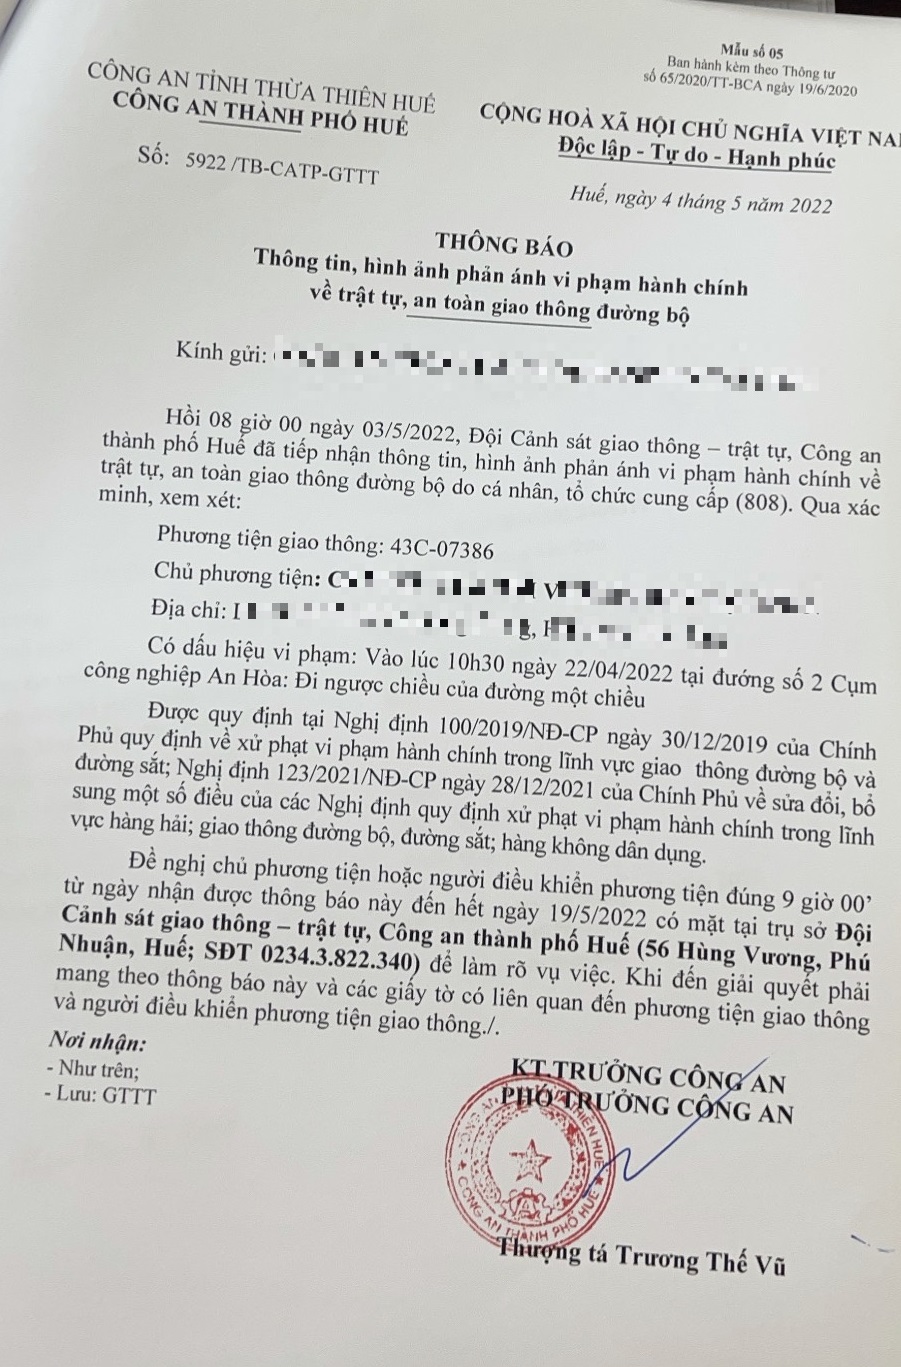 Mẫu số 05
Ban hành kèm theo Thông tư
số 65/2020/TT-BCA ngày 19/6/2020
CÔNG AN TỈNH THỪA THIÊN HUẾ
CÔNG AN THÀNH PHỐ HUẾ
Số: 5922 /TB-CATP-GTTT
CỘNG HOÀ XÃ HỘI CHỦ NGHĨA VIỆT
Độc lập - Tự do - Hạnh phúc
Huế, ngày 4 tháng 5 năm 2022
THÔNG BÁO
Thông tin, hình ảnh phản ánh vi phạm hành chính
về trật tự, an toàn giao thông đường bộ
Kính gửi:
Hồi 08 giờ 00 ngày 03/5/2022, Đội Cảnh sát giao thông – trật tự, Công an
thành phố Huế đã tiếp nhận thông tin, hình ảnh phản ánh vi phạm hành chính về
trật tự, an toàn giao thông đường bộ do cá nhân, tổ chức cung cấp (808). Qua xác
minh, xem xét:
Phương tiện giao thông: 43C-07386
Chủ phương tiện:
Địa chỉ:
Có dấu hiệu vi phạm: Vào lúc 10h30 ngày 22/04/2022 tại đướng số 2 Cụm
công nghiệp An Hòa: Đi ngược chiều của đường một chiều
Được quy định tại Nghị định 100/2019/NĐ-CP ngày 30/12/2019 của Chính
Phủ quy định về xử phạt vi phạm hành chính trong lĩnh vực giao thông đường bộ và
đường sắt; Nghị định 123/2021/NĐ-CP ngày 28/12/2021 của Chính Phủ về sửa đổi, bổ
sung một số điều của các Nghị định quy định xử phạt vi phạm hành chính trong lĩnh
vực hàng hải; giao thông đường bộ, đường sắt; hàng không dân dụng.
Đề nghị chủ phương tiện hoặc người điều khiển phương tiện đúng 9 giờ 00’
từ ngày nhận được thông báo này đến hết ngày 19/5/2022 có mặt tại trụ sở Đội
Cảnh sát giao thông – trật tự, Công an thành phố Huế (56 Hùng Vương, Phú
Nhuận, Huế; SĐT 0234.3.822.340) để làm rõ vụ việc. Khi đến giải quyết phải
mang theo thông báo này và các giấy tờ có liên quan đến phương tiện giao thông
và người điều khiển phương tiện giao thông./.
Nơi nhận:
- Như trên;
- Lưu: GTTT
KT.TRƯỞNG CÔNG AN
PHÓ TRƯỞNG CÔNG AN
CÔNG AN THÀNH PHỐ HUẾ
Thượng tá Trương Thế Vũ